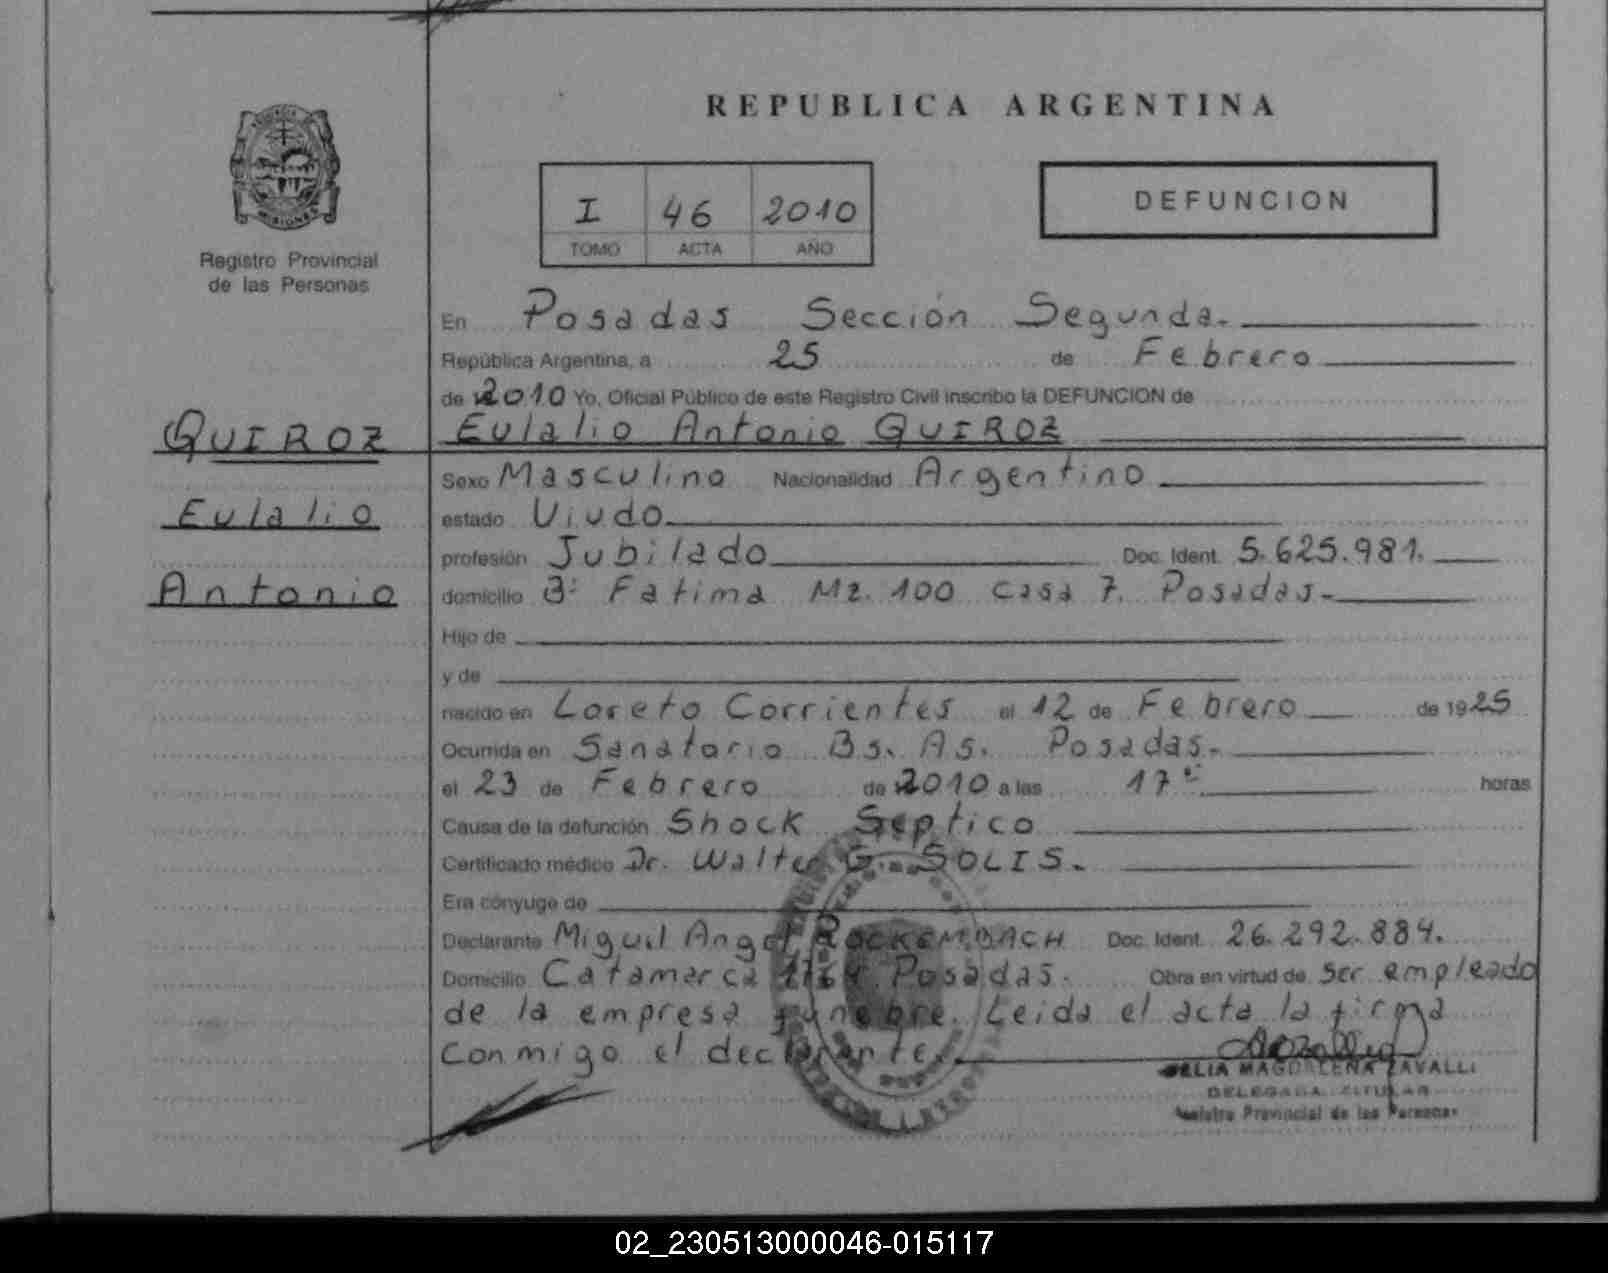 REPUBLICA ARGENTINA
MISIONES
Registro Provincial
de las Personas
I 46 2010
TOMO ACTA AÑO
DEFUNCION
En Posadas Sección Segunda.
República Argentina, a 25 de Febrero
de 2010 Yo, Oficial Público de este Registro Civil inscribo la DEFUNCION de
QUIROZ
Eulalio Antonio QUIROZ
Sexo Masculino Nacionalidad Argentino
Eulalio
estado Viudo
profesión Jubilado Doc. Ident. 5.625.981.
Antonio
domicilio B: Fatima Mz. 100 Casa 7. Posadas-
Hijo de
y de
nacido en Loreto Corrientes el 12 de Febrero de 1925
Ocurrida en Sanatorio Bs. As. Posadas-
el 23 de Febrero de 2010 a las 17 horas
Causa de la defunción Shock Septico
Certificado médico Dr. Walter G. SOLIS.
Era cónyuge de
Declarante Miguel Angel ROCKEMBACH Doc. Ident. 26.292.884.
Domicilio Catamarca Posadas. Obra en virtud de ser empleado
de la empresa funebre. Leida el acta la firma
conmigo el declarante.
MAGDALENA ZAVALLI
DELEGADA TITULAR
Registro Provincial de las Personas
02_230513000046-015117